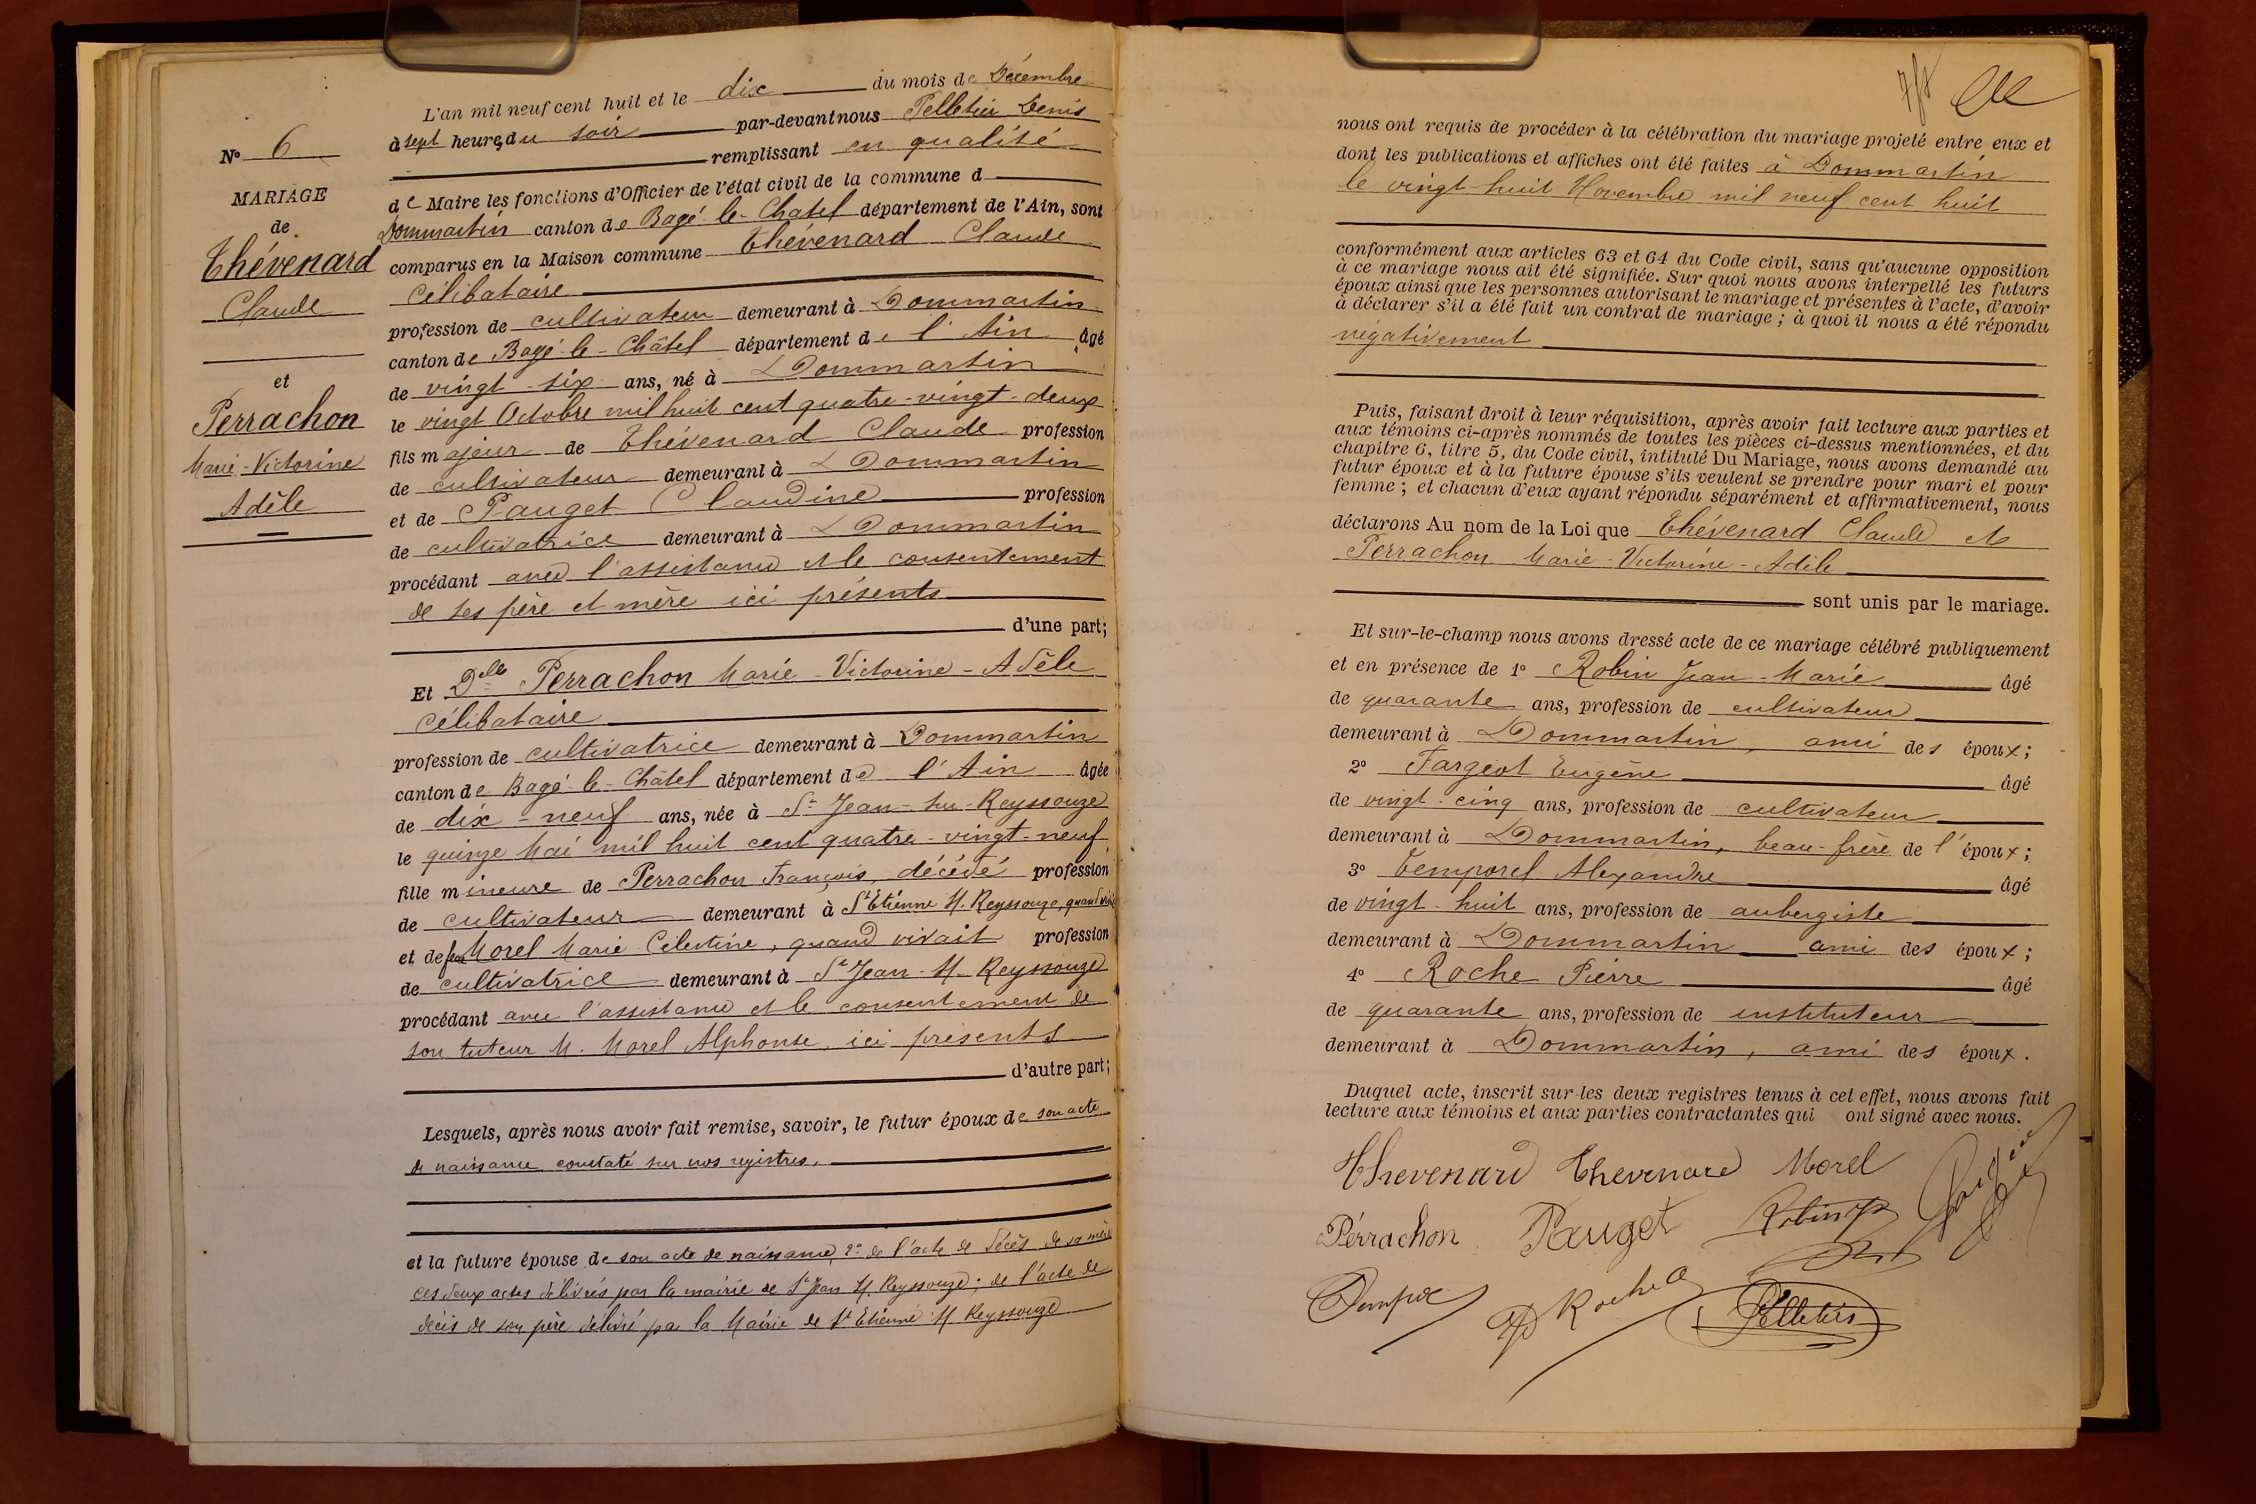 N° 6
MARIAGE
de
Thévenard
Claude
et
Perrachon
Marie-Victorine
Adèle
L'an mil neuf cent huit et le dix du mois de Décembre
à sept heures du soir par-devant nous Pelletier Denis
remplissant en qualité
de Maire les fonctions d'Officier de l'état civil de la commune d
Dommartin canton de Bagé-le-Chatel département de l'Ain, sont
comparus en la Maison commune Thévenard Claude
célibataire
profession de cultivateur demeurant à Dommartin
canton de Bagé-le-Châtel département de l'Ain âgé
de vingt-six ans, né à Dommartin
le vingt Octobre mil huit cent quatre-vingt-deux
fils majeur de Thévenard Claude profession
de cultivateur demeurant à Dommartin
et de Pauget Claudine profession
de cultivatrice demeurant à Dommartin
procédant avec l'assistance et le consentement
de ses père et mère ici présents
d'une part;
Et Delle Perrachon Marie-Victorine-Adèle
célibataire
profession de cultivatrice demeurant à Dommartin
canton de Bagé-le-Châtel département de l'Ain âgée
de dix-neuf ans, née à St Jean-sur-Reyssouze
le quinze Mai mil huit cent quatre-vingt-neuf
fille mineure de Perrachon François, décédé profession
de cultivateur demeurant à St Etienne s/. Reyssouze, quand vivait
et de feue Morel Marie Célestine, quand vivait profession
de cultivatrice demeurant à St Jean-s/-Reyssouze
procédant avec l'assistance et le consentement de
son tuteur M. Morel Alphonse, ici présents
d'autre part;
Lesquels, après nous avoir fait remise, savoir, le futur époux de son acte
de naissance constaté sur nos registres.
et la future épouse de son acte de naissance, 2° de l'acte de décès de sa mère
ces deux actes délivrés par la mairie de St Jean s/. Reyssouze; de l'acte de
décès de son père délivré par la Mairie de St Etienne s/ Reyssouze
nous ont requis de procéder à la célébration du mariage projeté entre eux et
dont les publications et affiches ont été faites à Dommartin
le vingt-huit Novembre mil neuf cent huit
conformément aux articles 63 et 64 du Code civil, sans qu'aucune opposition
à ce mariage nous ait été signifiée. Sur quoi nous avons interpellé les futurs
époux ainsi que les personnes autorisant le mariage et présentes à l'acte, d'avoir
à déclarer s'il a été fait un contrat de mariage; à quoi il nous a été répondu
négativement
Puis, faisant droit à leur réquisition, après avoir fait lecture aux parties et
aux témoins ci-après nommés de toutes les pièces ci-dessus mentionnées, et du
chapitre 6, titre 5, du Code civil, intitulé Du Mariage, nous avons demandé au
futur époux et à la future épouse s'ils veulent se prendre pour mari et pour
femme; et chacun d'eux ayant répondu séparément et affirmativement, nous
déclarons Au nom de la Loi que Thévenard Claude et
Perrachon Marie-Victorine-Adèle
sont unis par le mariage.
Et sur-le-champ nous avons dressé acte de ce mariage célébré publiquement
et en présence de 1° Robin Jean-Marie âgé
de quarante ans, profession de cultivateur
demeurant à Dommartin, ami des époux;
2° Fargeot Eugène âgé
de vingt-cinq ans, profession de cultivateur
demeurant à Dommartin, beau-frère de l'époux;
3° Temporel Alexandre âgé
de vingt-huit ans, profession de aubergiste
demeurant à Dommartin ami des époux;
4° Roche Pierre âgé
de quarante ans, profession de instituteur
demeurant à Dommartin, ami des époux.
Duquel acte, inscrit sur les deux registres tenus à cet effet, nous avons fait
lecture aux témoins et aux parties contractantes qui ont signé avec nous.
Thevenard Thevenard Morel
Pérrachon Pauget Robin
Roche Pelletier